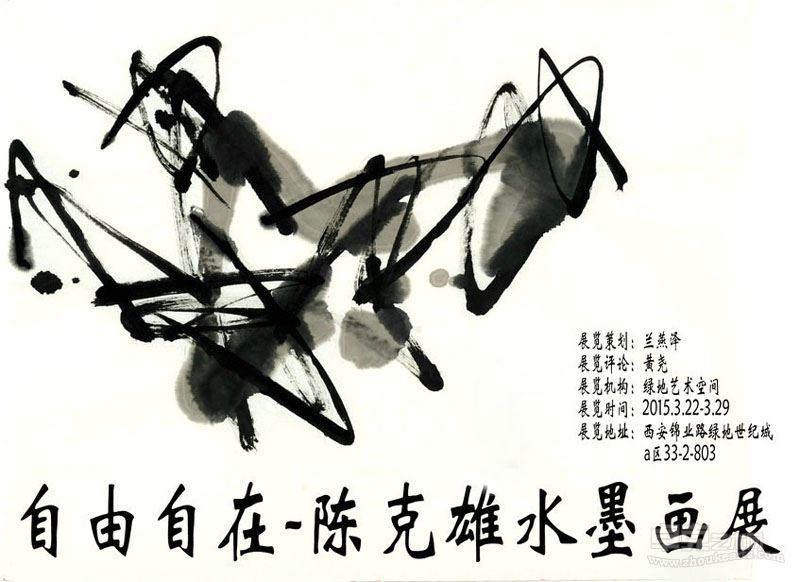 展览策划：兰燕泽
展览评论：黄尧
展览机构：绿地艺术空间
展览时间：2015.3.22-3.29
展览地址：西安锦业路绿地世纪城
a区33-2-803
自由自在-陈克雄水墨画展